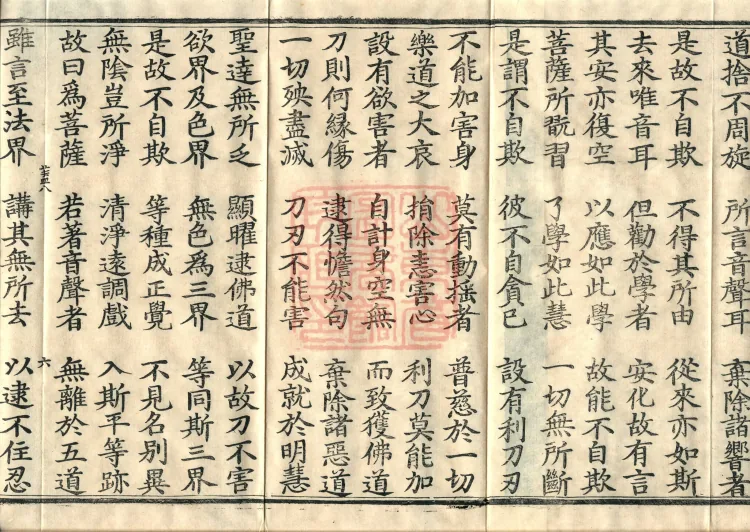 道捨不周旋 所言音聲耳 棄除諸響者
是故不自欺 不得其所由 從來亦如斯
去來唯音耳 但勸於學者 安化故有言
其安亦復空 以應如此學 故能不自欺
菩薩所翫習 了學如此慧 一切無所斷
是謂不自欺 彼不自貪已 設有利刀刃
不能加害身 莫有動搖者 普慈於一切
樂道之大哀 捐除恚害心 利刀莫能加
設有欲害者 自計身空無 而致獲佛道
刀則何緣傷 逮得憺然句 棄除諸惡道
一切殃盡滅 刀刃不能害 成就於明慧
聖達無所乏 顯曜逮佛道 以故刀不害
欲界及色界 無色為三界 等同斯三界
是故不自欺 等種成正覺 不見名別異
無陰豈所淨 清淨遠調戲 入斯平等跡
故曰為菩薩 若著音聲者 無離於五道
六
雖言至法界 講其無所去 以逮不住忍